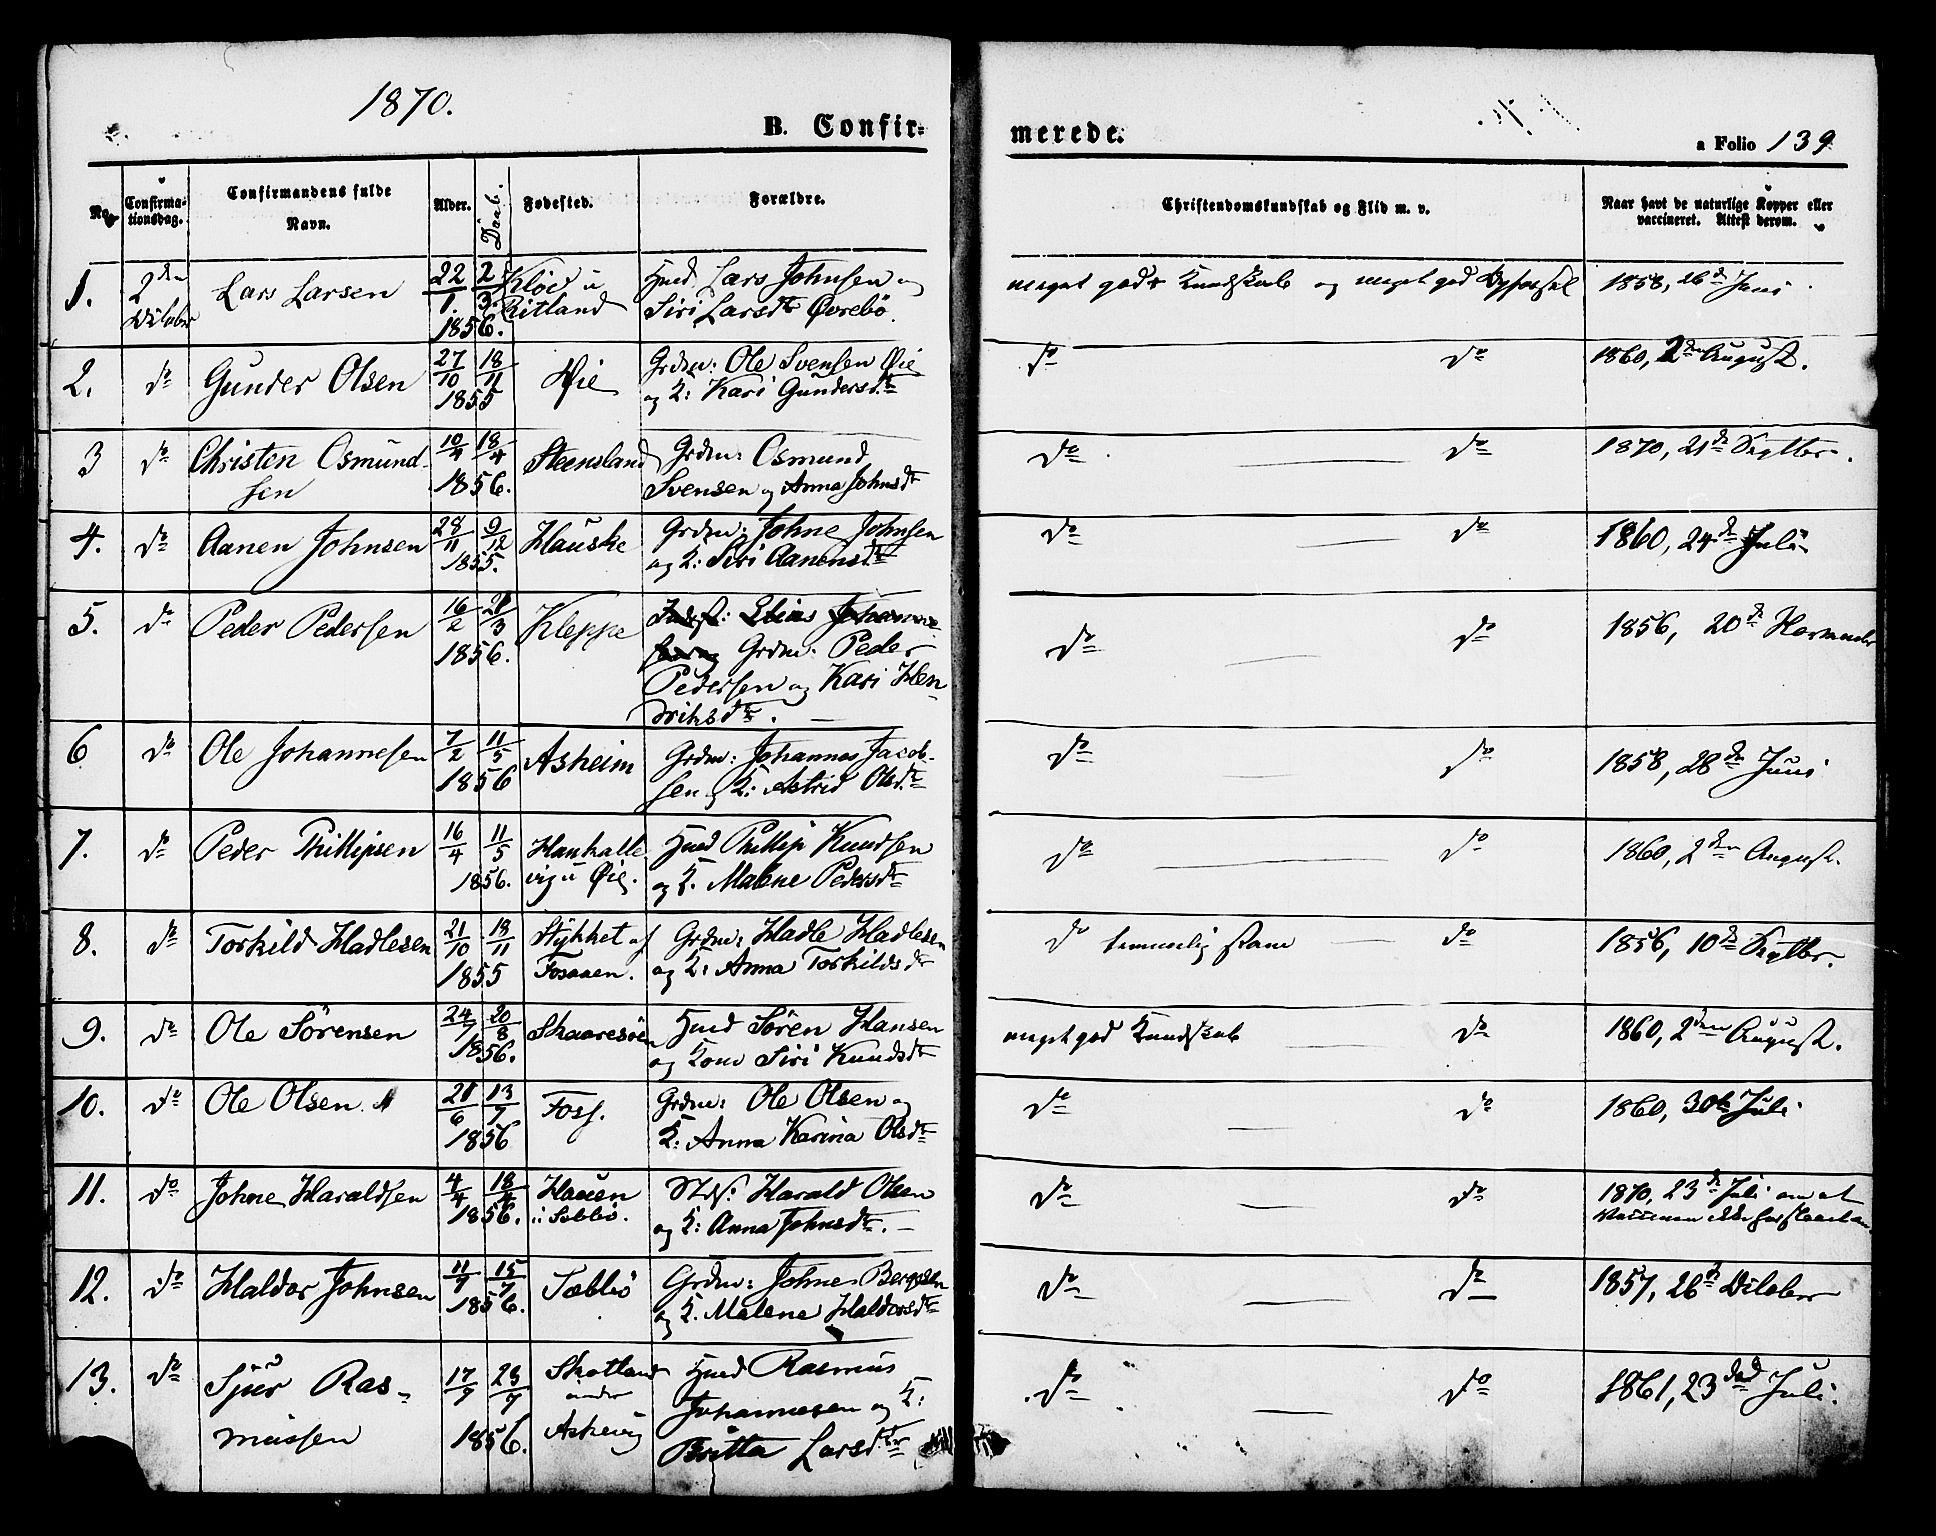 1870.
B. Confir-
merede.
a Folio 139
No.
Confirma-
tionsdag.
Confirmandens fulde
Navn.
Alder.
Daab.
Fødested.
Forældre.
Christendomskundskab og Flid m. v.
Naar havt de naturlige Kopper eller
vaccineret. Attest derom.
1. 2den Lars Larsen 22/1 2/3 1856. Ritland
Hmd Lars Johnsen og
Siri Larsdtr Øvrebö.
meget god Kundskab og meget god 1858, 26de Juni
2. do Gunder Olsen 27/10 18/11 1855 Øie
Grdm: Ole Svensen Øie
og K: Kari Gundersdtr
do do 1860, 2den August.
3 do Christen Osmund-
sen 10/4 18/4 1856. Steensland
Grdm: Osmund
Svensen og Anna Johnsdtr
do do 1870, 21de Septbr.
4. do Aanen Johnsen 28/11 9/12 1855. Hauske
Grdm: Johne Johnsen
og K: Siri Aanensdtr
do do 1860, 24de Juli
5. do Peder Pedersen 16/2 21/3 1856. Kleppe
Elias
Grdm: Peder
Pedersen og Kari Hen-
driksdtr.
do do 1856, 20de
6 do Ole Johannesen 7/2 11/5 1856 Asheim
Grdm: Johannes Jacob-
sen og K: Astrid Olsdtr
do do 1858, 28de Juni
7. do Peder Phillipsen 16/4 11/5 1856. Haukalle
vig u Øie.
Hmd Phillip Knudsen
og K. Malene Pedersdtr
do do 1860, 2den August.
8. do Torkild Hadlesen 21/10 18/11 1855 Stykket af
Fosaaen.
Grdm: Hadle Hadlesen
og K: Anna Torkildsdtr
do temmelig do 1856, 10de Septbr.
9. do Ole Sörensen 24/7 20/8 1856. Skaaresöen
Hmd Sören Hansen
og Kone Siri Knudsdtr
meget god Kundskab do 1860, 2den August.
10. do Ole Olsen 21/6 13/7 1856 Foss.
Grdm: Ole Olsen og
K: Anna Karina Olsdtr
do do 1860, 30te Juli
11. do Johne Haraldsen 4/4 18/4 1856. Hauen
i Sæbbö.
Harald Olsen
og K: Anna Johnsdtr.
do do 1870, 23de Juli om at
Vaccinen ikke
12. do Haldor Johnsen 11/7 15/7 1856. Sæbbö
Grdm: Johne Bergesen
og K. Malene Haldorsdtr
do do 1857, 26de Octobr
13. do Sjur Ras-
mussen 17/7 23/7 1856. Skotland
under
Askevig
Hmd Rasmus
Johannesen og K:
Britta Larsdtr
do do 1861, 23 Juli.